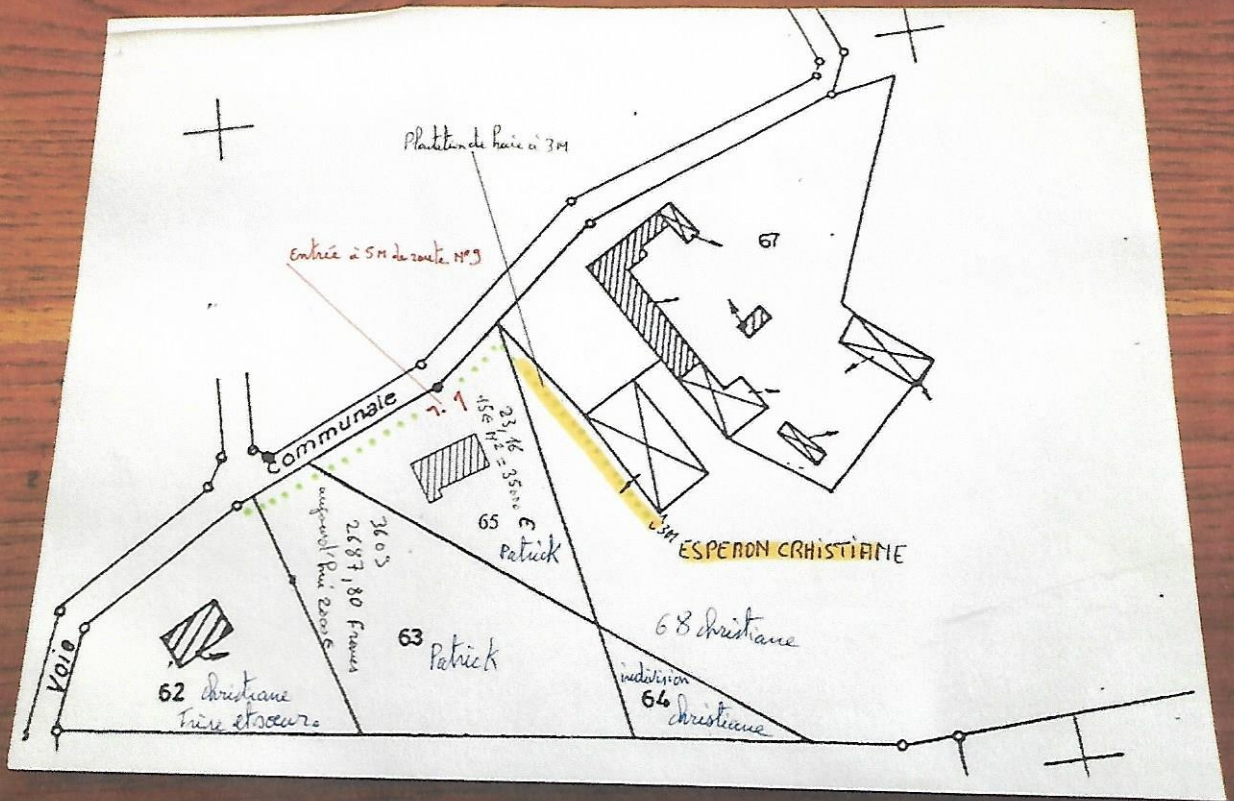 Plantation de haie à 3M
67
Entrée à 5M de route N° 9
Communale
n. 1
23,16
15€ M² = 35000 €
65
Patrick
3M
ESPERON CRHISTIANE
3603
2687,80 Francs
aujourd'hui 22000€
63
Patrick
68 christiane
indivision
64
christiane
Voie
62 christiane
Frère et soeur.